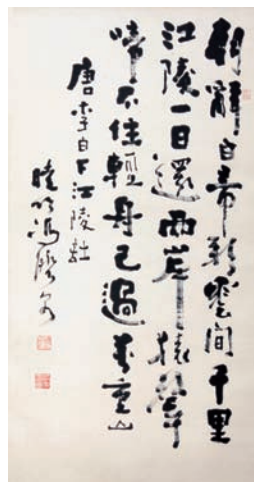 朝辭白帝彩雲間千里
江陵一日還兩岸猿聲
啼不住輕舟已過萬重山
唐李白下江陵
馮